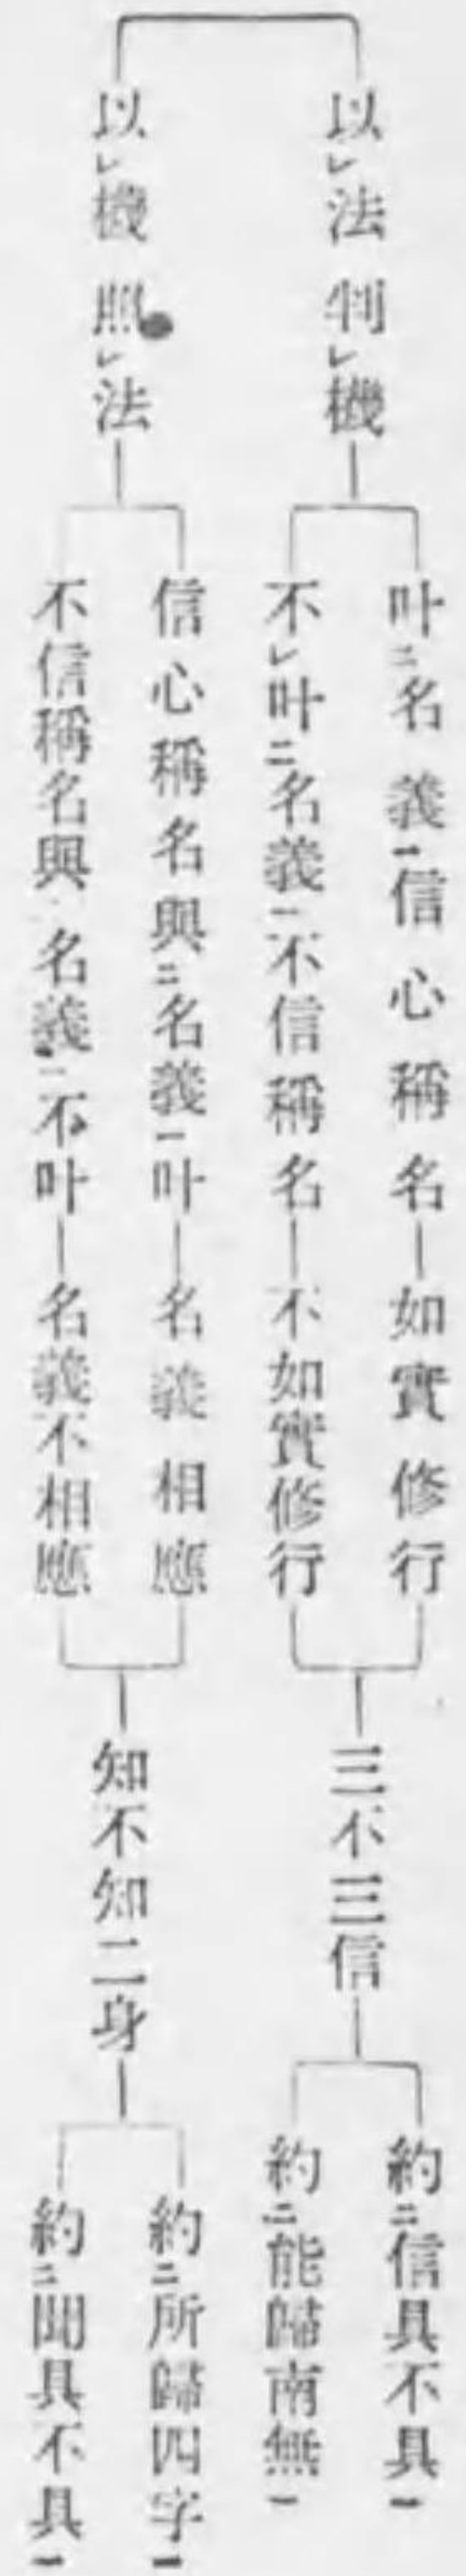 以レ法判レ機
叶二名義一信心稱名
如實修行
不レ叶二名義一不信稱名
不如實修行
三不三信
約二信具不具一
約二能歸南無一
以レ機照レ法
信心稱名與二名義一叶
名義相應
不信稱名與二名義一不叶
名義不相應
知不知二身
約二所歸四字一
約二聞具不具一